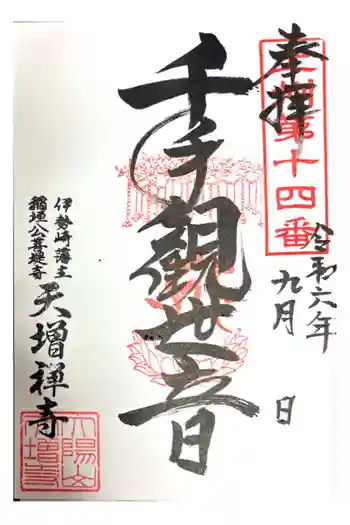 奉拝
上州第十四番
令和六年
九月 日
千手觀世音
伊勢崎藩主
稲垣公菩提寺
天増禅寺